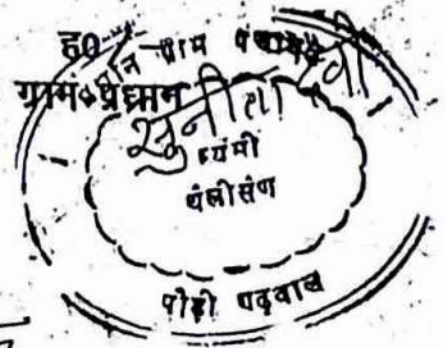 ह0
ग्राम प्रधान
ग्राम पंचायत
सुनीता देवी
थलीसैंण
पौड़ी गढ़वाल